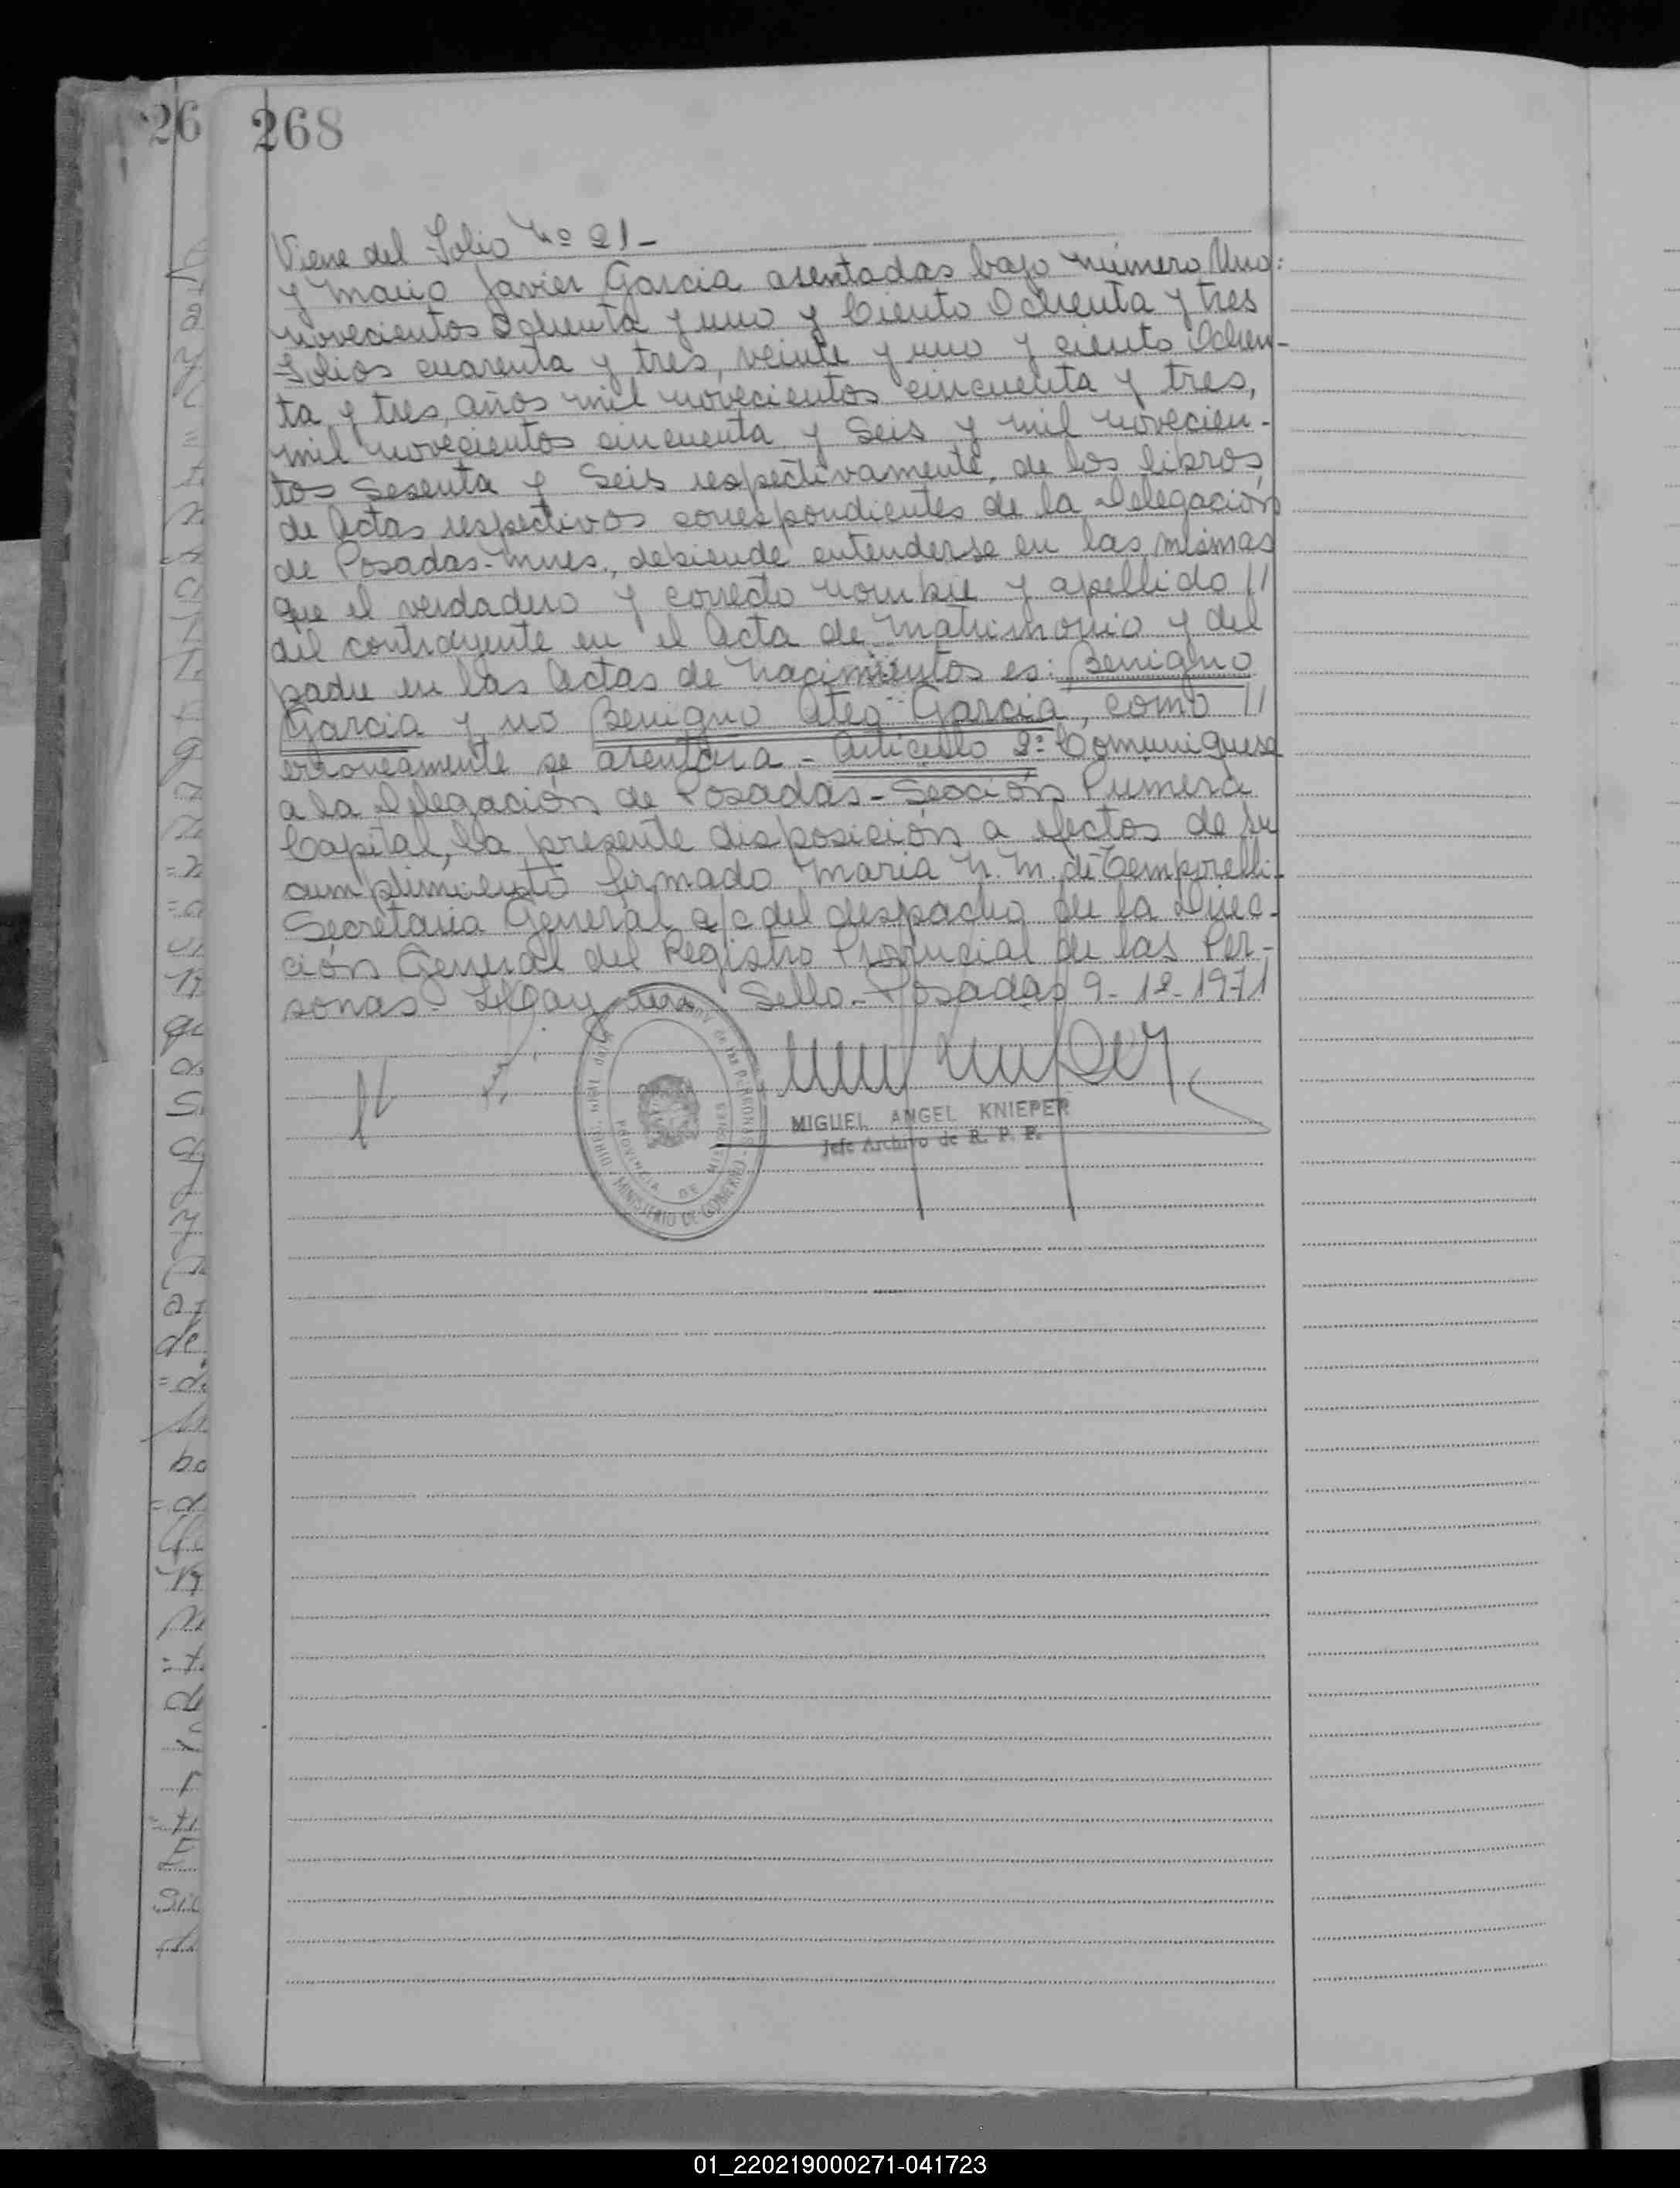 268
26
Viene del Folio Nº 21-
y Mario Javier Garcia asentadas bajo número Uno:
novecientos ochenta y uno y Ciento Ochenta y tres
Folios cuarenta y tres, veinte y uno y ciento Ochen-
ta y tres, años mil novecientos cincuenta y tres,
mil novecientos cincuenta y Seis y mil novecien-
tos Sesenta y Seis respectivamente, de los libros
de Actas respectivos correspondientes de la Delegación
de Posadas-Mnes., debiende entenderse en las mismas
que el verdadero y correcto nombre y apellido //
del contrayente en el Acta de Matrimonio y del
padre en las Actas de Nacimientos es: Benigno
Garcia y no Benigno Ateo Garcia, como //
erroneamente se asentara - Articulo 2º: Comuniquese
a la Delegación de Posadas-Sección Primera
Capital, la presente disposición a efectos de su
cumplimiento firmado Maria N. M. de Temporelli-
Secretaria General a/c del despacho de la Direc-
ción General del Registro Provincial de las Per-
sonas- Hay un Sello- Posadas 9-12-1971
MIGUEL ANGEL KNIEPER
Jefe Archivo de R. P. P.
PROVINCIA DE MISIONES
MINISTERIO DE GOBIERNO
01_220219000271-041723